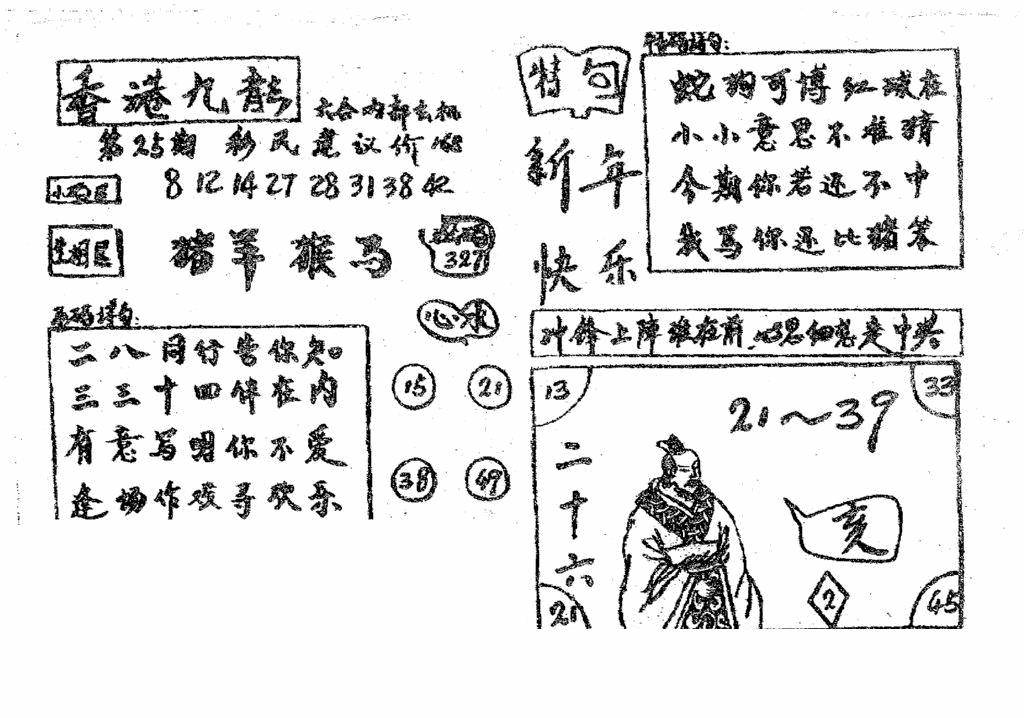 香港九龍
六合内部玄机
第25期 彩民建议价
8 12 14 27 28 31 38 42
猪羊猴马
327
心水
二八同行告你知
三三十四伴在内
有意写明你不爱
逢场作戏寻欢乐
15 21
38 49
特句
新年
快乐
蛇狗可博红球在
小小意思不难猜
今期你若还不中
我骂你还比猪笨
冲锋上阵谁在前
13
33
21～39
二十六
亥
2
21
45